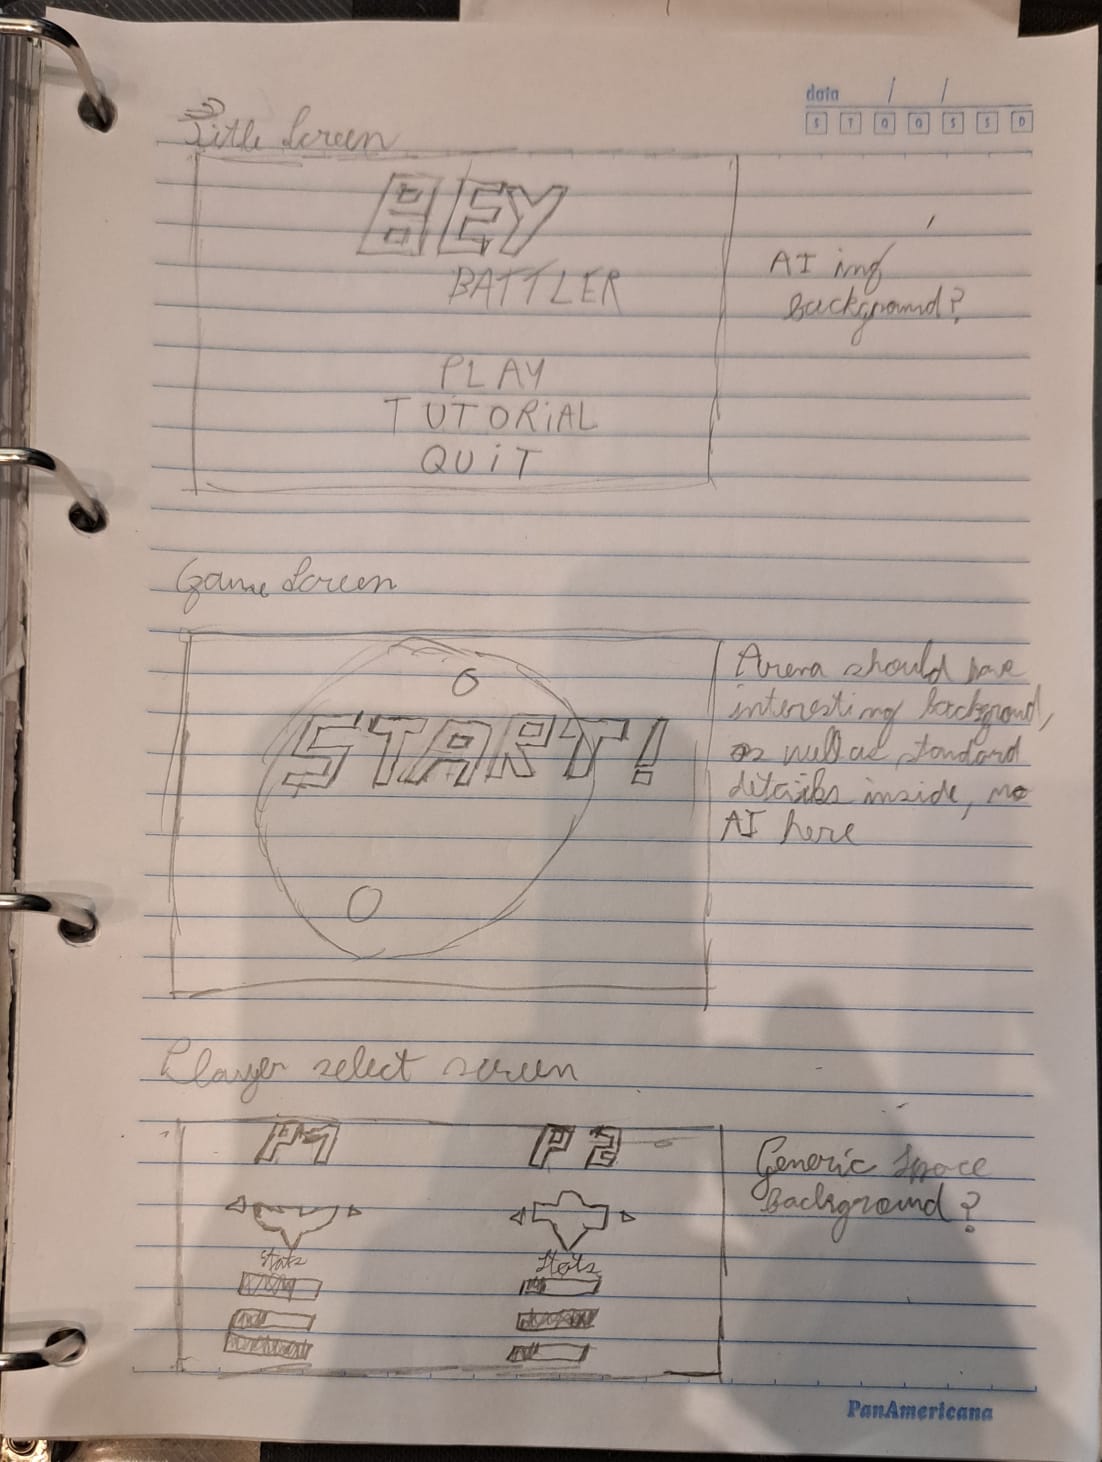 data / /
S T Q Q S S D
Title Screen
BEY
BATTLER
PLAY
TUTORiAL
QUiT
AI img
background?
Game Screen
START!
Arena should have
interesting backgroud,
as well as standard
details inside, no
AI here
Player select screen
P1
P2
Stats
Stats
Generic Space
Background?
PanAmericana